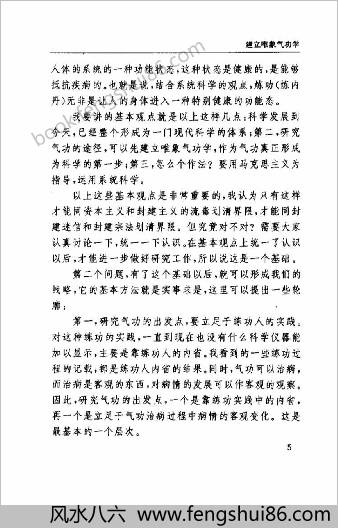 建立唯象气功学
人体的系统的一种功能状态,这种状态是健康的,是能够
抵抗疾病的。也就是说,结合系统科学的观点,练功(练内
丹)无非是让人的身体进入一种特别健康的功能态。
我要讲的基本观点就是以上这样几点:科学发展到
今天,已经整个形成为一门现代科学的体系;第二,研究
气功的途径,可以先建立唯象气功学,作为气功真正形成
为科学的第一步;第三,怎么个作法?要用马克思主义为
指导,运用系统科学。
以上这些基本观点是非常重要的,我认为只有这样
才能同资本主义和封建主义的流毒划清界限,才能同封
建迷信和封建宗法划清界限。但究竟对不对?需要大家
认真讨论一下,统一一下认识。在基本观点上统一了认识
以后,才能进一步做好研究工作,所以说这是一个基础。
第二个问题,有了这个基础以后,就可以形成我们的
战略,它的基本方法就是实事求是,这里可以提出一些轮
廓:
第一,研究气功的出发点,要立足于练功人的实践。
对这种练功的实践,一直到现在也没有什么科学仪器能
加以显示,主要是靠练功人的内省。我看到的一些练功过
程的记载,都是练功人内省的结果。同时,气功可以治病,
而治病是客观的东西,对病情的发展可以作客观的观察。
因此,研究气功的出发点,一个是靠练功实践中的内省,
再一个是立足于气功治病过程中病情的客观变化。这是
最基本的一个层次。
5
bookfengshui86.com
风水八六 www.fengshui86.com